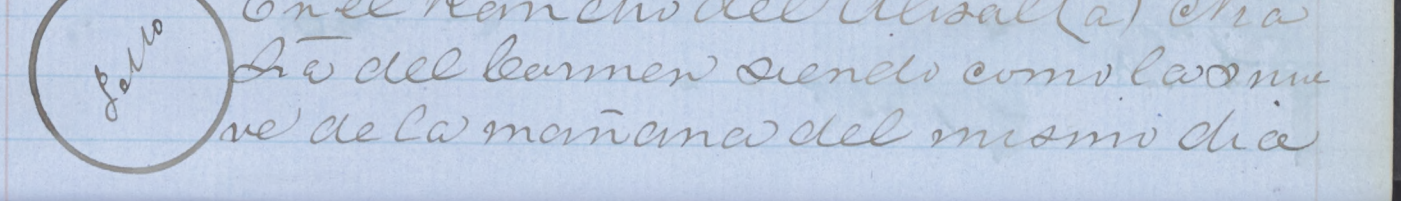 Sello
En el Rancho del Alisal (a) Nra
Sra del Carmen siendo como las nue
ve de la mañana del mismo dia